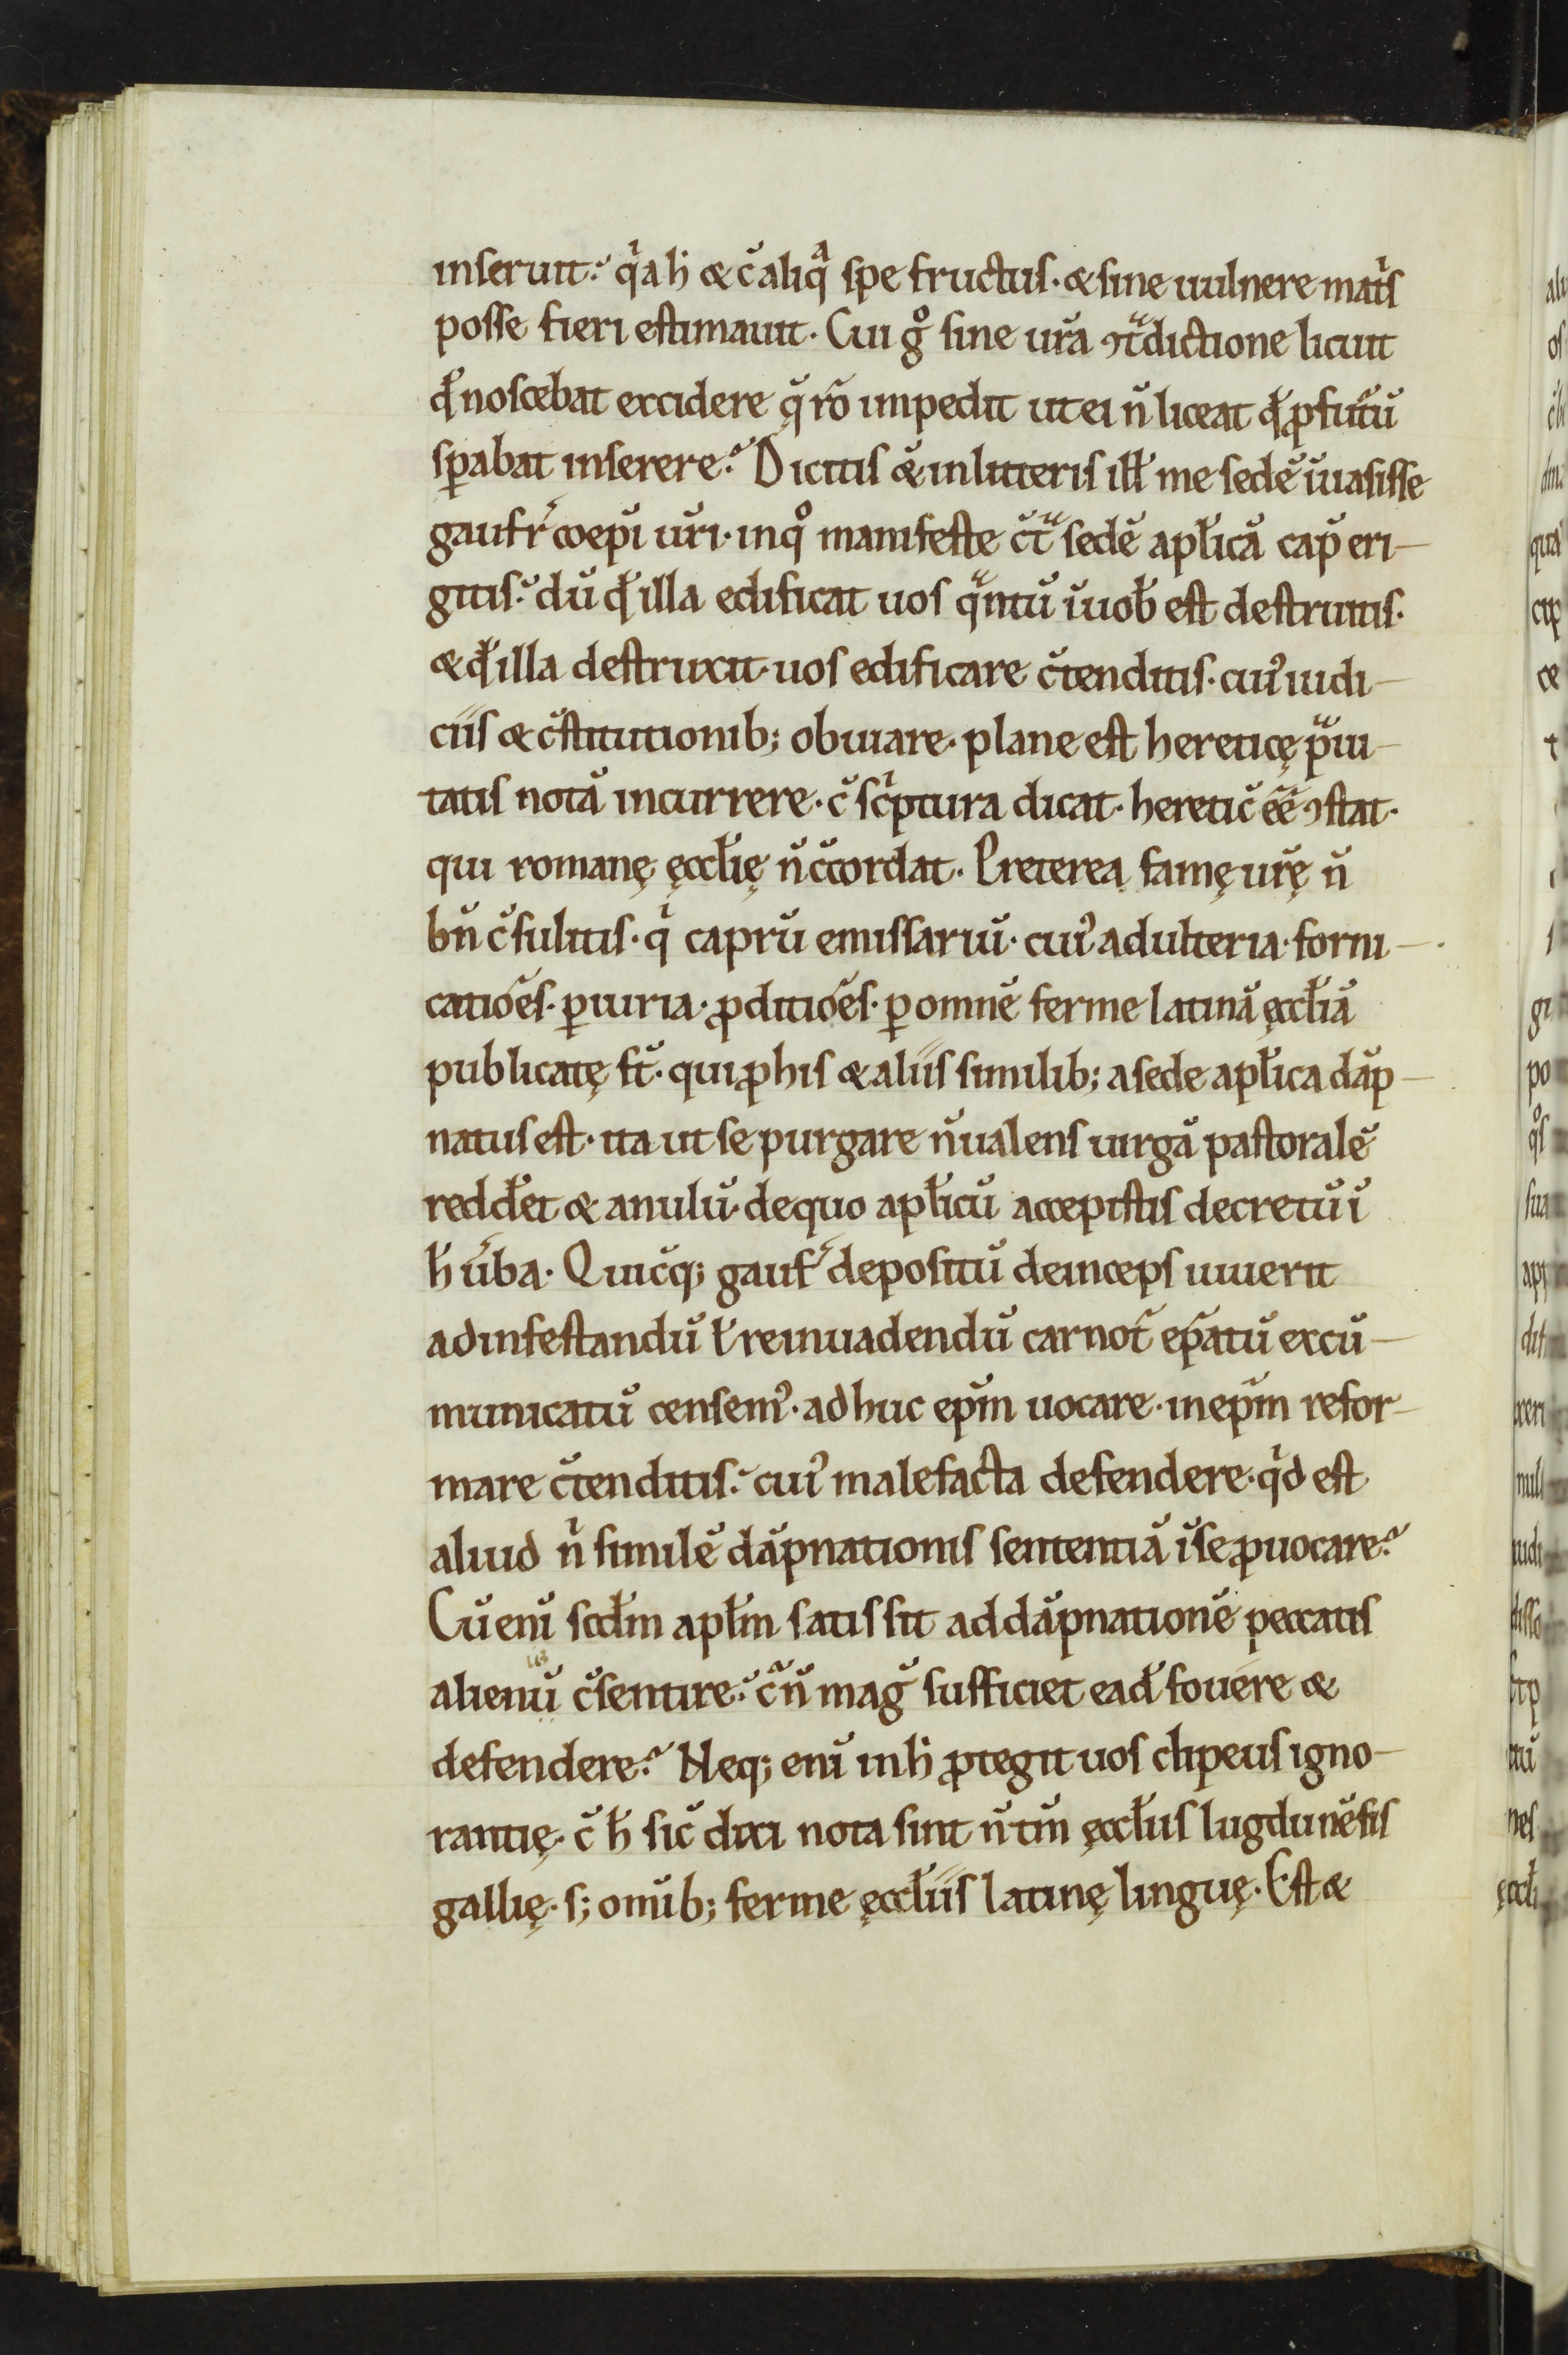 inseruit? qͥa h̄ & c̄ aliqͣ spe fructus· & sine uulnere matͥs
posse fieri estimauit· Cui gͦ sine ur̄a ꝯtͣdictione licuit
qđ noscebat excidere q̨̄ rō impedit ut ei n̄ liceat qđ ꝓfutū
sꝑabat inserere? Dicitis & in litteris ill̄ me sedē īuasisse
gaufr̄ coepī ur̄i· in qͦ manifeste c̄tͣ sedē apl̄icā cap̄ eri-
gitis? dū qđ illa edificat uos qͣntū ī uob̄ est destruitis·
& qđ illa destruxit· uos edificare c̄tenditis· cui᾽ iudi-
ciis & c̄stitutionib; obuiare· plane est hereticę pͣui-
tatis notā incurrere· c̄ scͥptura dicat· heretic̄ ēē ꝯstat·
qui romanę ęccl̄ię n̄ c̄cordat· Pretereą famę ur̄ę n̄
bn̄ c̄sulitis· qͥ caprū emissariū· cui᾽ adulteria· forni-
catiōes· ꝑiuria· ꝓditiōes· ꝑ omnē ferme latinā ęccl̄iā
publicatę st̄· qui ꝓ his & aliis similib; a sede apl̄ica dāp-
natus est· ita ut se purgare n̄ ualens uirgā pastoralē
reddēt & anulū· de quo apl̄icū accepistis decretū ī
h̄ ūba· Quicq̄; gauf᷑ depositū deinceps iuuerit
ad infestandū ł reinuadendū carnot̄ ep̄atū excū-
municatū censem᾽· adhuc ep̄m uocare· in ep̄m refor-
mare c̄tenditis? cui᾽ malefacta defendere· qͥd est
aliud nͥ similē dāpnationis sententiā ī se ꝓuocare?
Cū enī scd̄m apl̄m satis sit ad dāpnationē peccatis
alienū c̄sentire? c̄ n̄ maḡ sufficiet ead̄ fouere &
defendere? Neq; enī in h̄ ꝓtegit uos clipeus igno-
rantię· c̄ h̄ sic̄ dixi nota sint n̄ tm̄ ęccl̄iis lugdunēsis
gallię· s; om̄ib; ferme ęccl̄iis latinę linguę· Est &